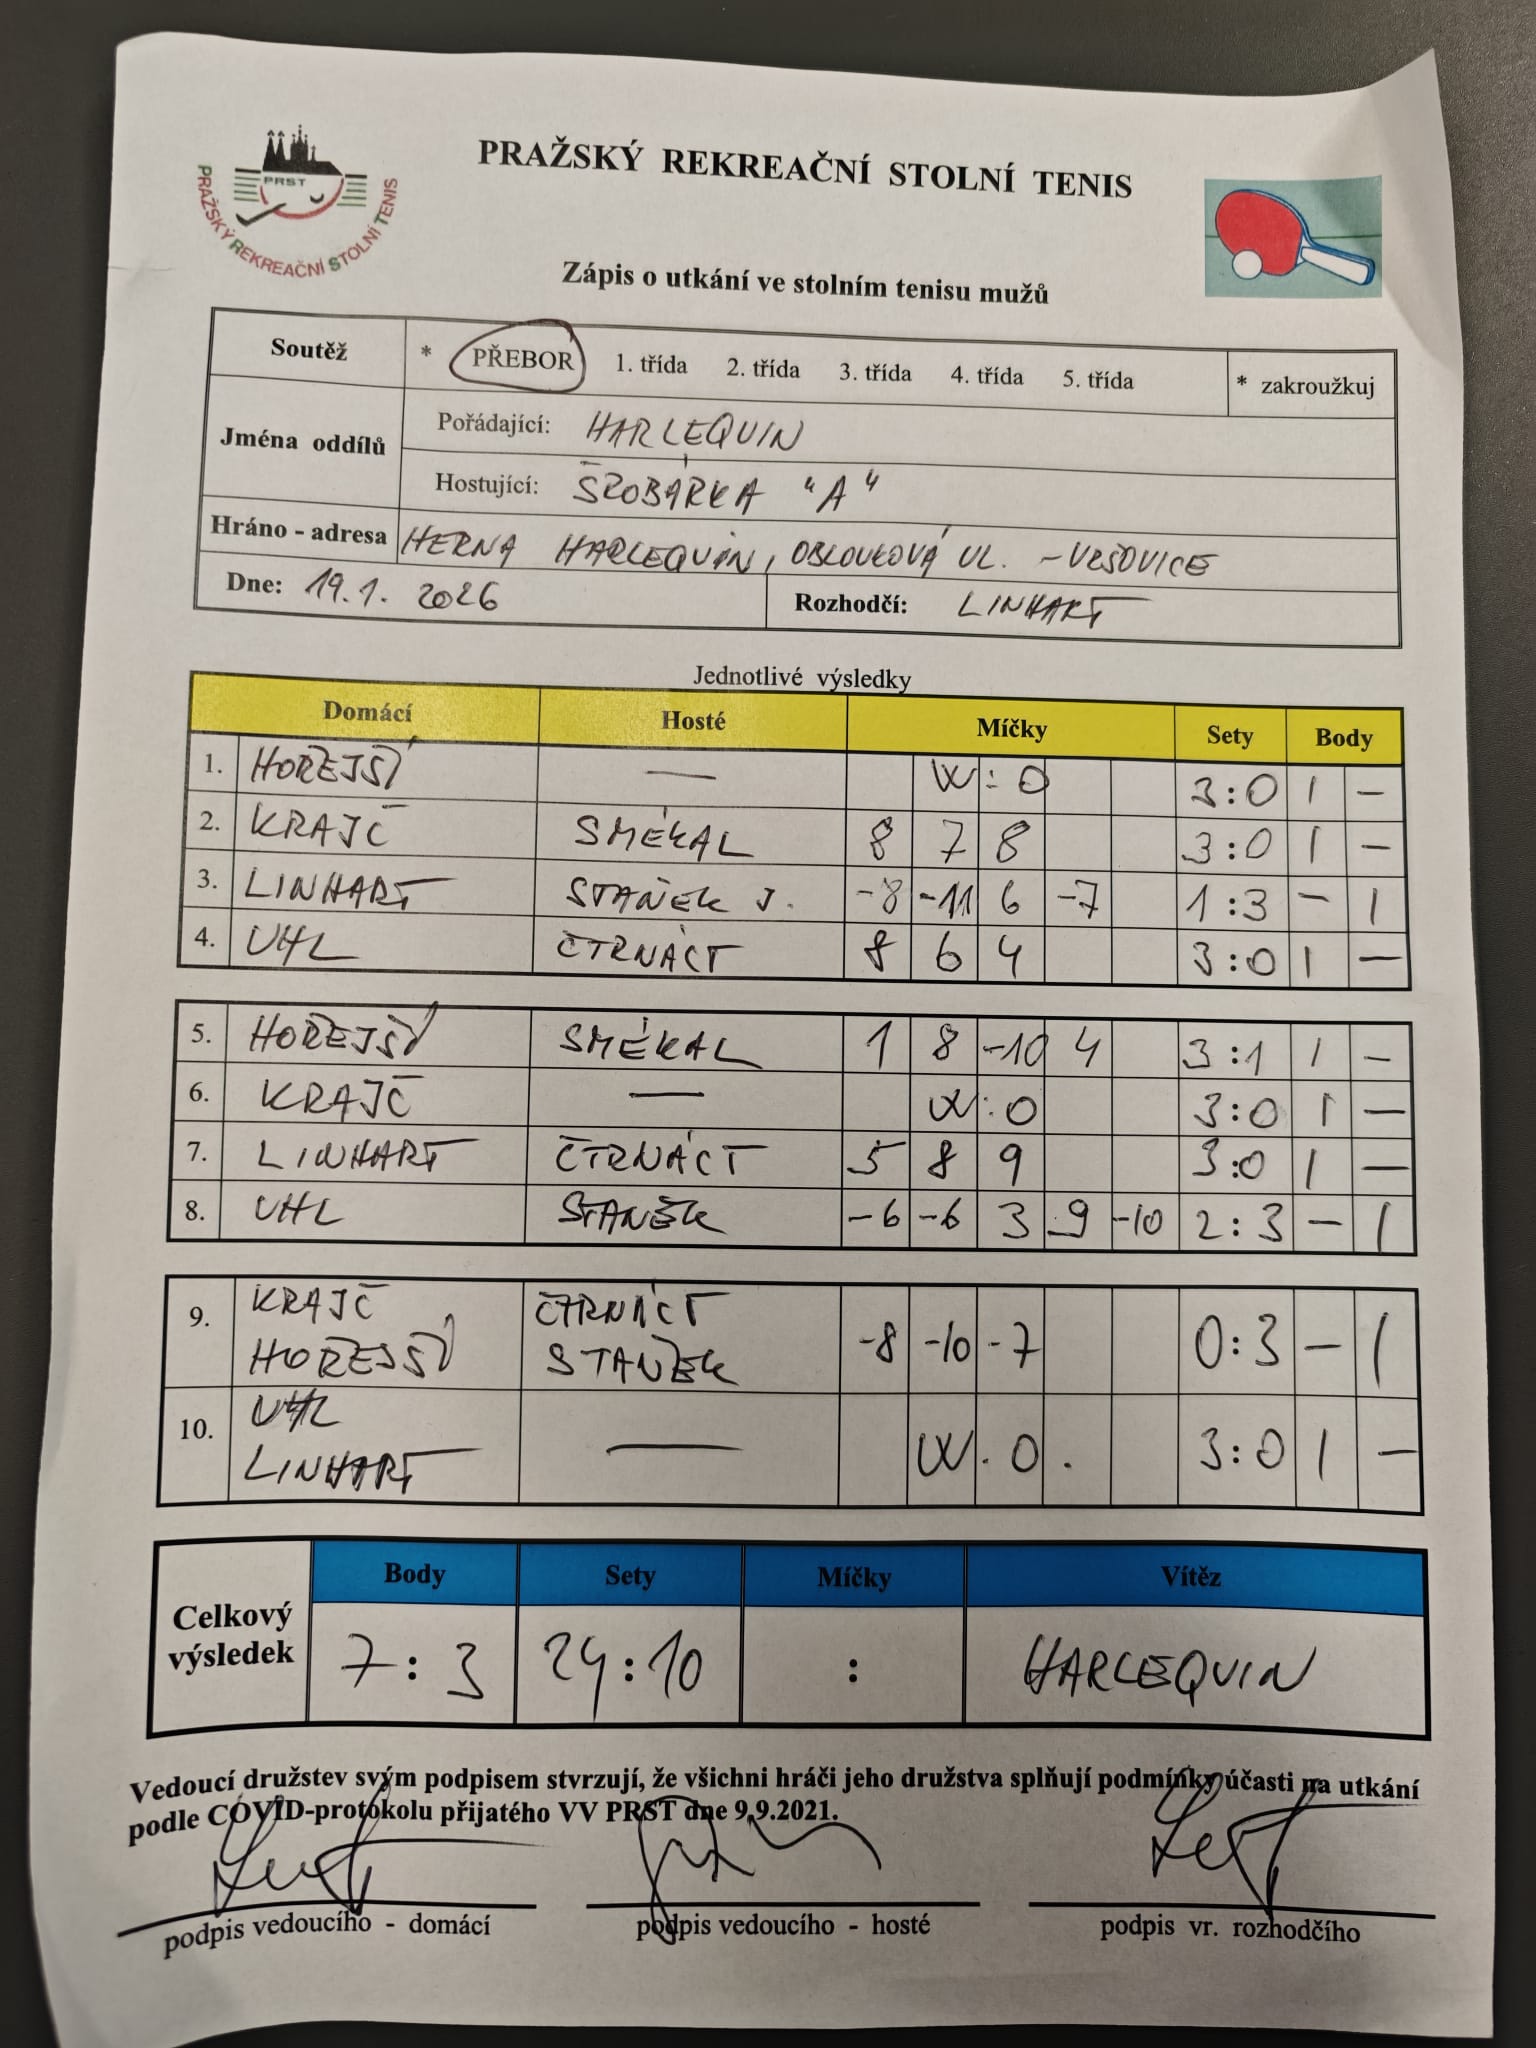 PRAŽSKÝ REKREAČNÍ STOLNÍ TENIS
PRST
PRAŽSKÝ REKREAČNÍ STOLNÍ TENIS
Zápis o utkání ve stolním tenisu mužů
Soutěž * PŘEBOR 1. třída 2. třída 3. třída 4. třída 5. třída * zakroužkuj
Jména oddílů
Pořádající: HARLEQUIN
Hostující: ŠROBÁRKA "A"
Hráno - adresa HERNA HARLEQUIN, OBLOUKOVÁ UL. - VRŠOVICE
Dne: 19.1. 2026 Rozhodčí: LINHART
Jednotlivé výsledky
Domácí Hosté Míčky Sety Body
1. HOŘEJŠÍ — W:0 3:0 1 -
2. KRAJČ SMÉKAL 8 7 8 3:0 1 -
3. LINHART STANĚK J. -8 -11 6 -7 1:3 - 1
4. UHL ČTRNÁCT 8 6 4 3:0 1 -
5. HOŘEJŠÍ SMÉKAL 1 8 -10 4 3:1 1 -
6. KRAJČ — W:0 3:0 1 -
7. LINHART ČTRNÁCT 5 8 9 3:0 1 -
8. UHL STANĚK -6 -6 3 9 -10 2:3 - 1
9. KRAJČ ČTRNÁCT
HOŘEJŠÍ STANĚK -8 -10 -7 0:3 - 1
10. UHL
LINHART — W:0 3:0 1 -
Celkový výsledek
Body Sety Míčky Vítěz
7:3 24:10 : HARLEQUIN
Vedoucí družstev svým podpisem stvrzují, že všichni hráči jeho družstva splňují podmínky účasti na utkání
podle COVID-protokolu přijatého VV PRST dne 9.9.2021.
podpis vedoucího - domácí podpis vedoucího - hosté podpis vr. rozhodčího